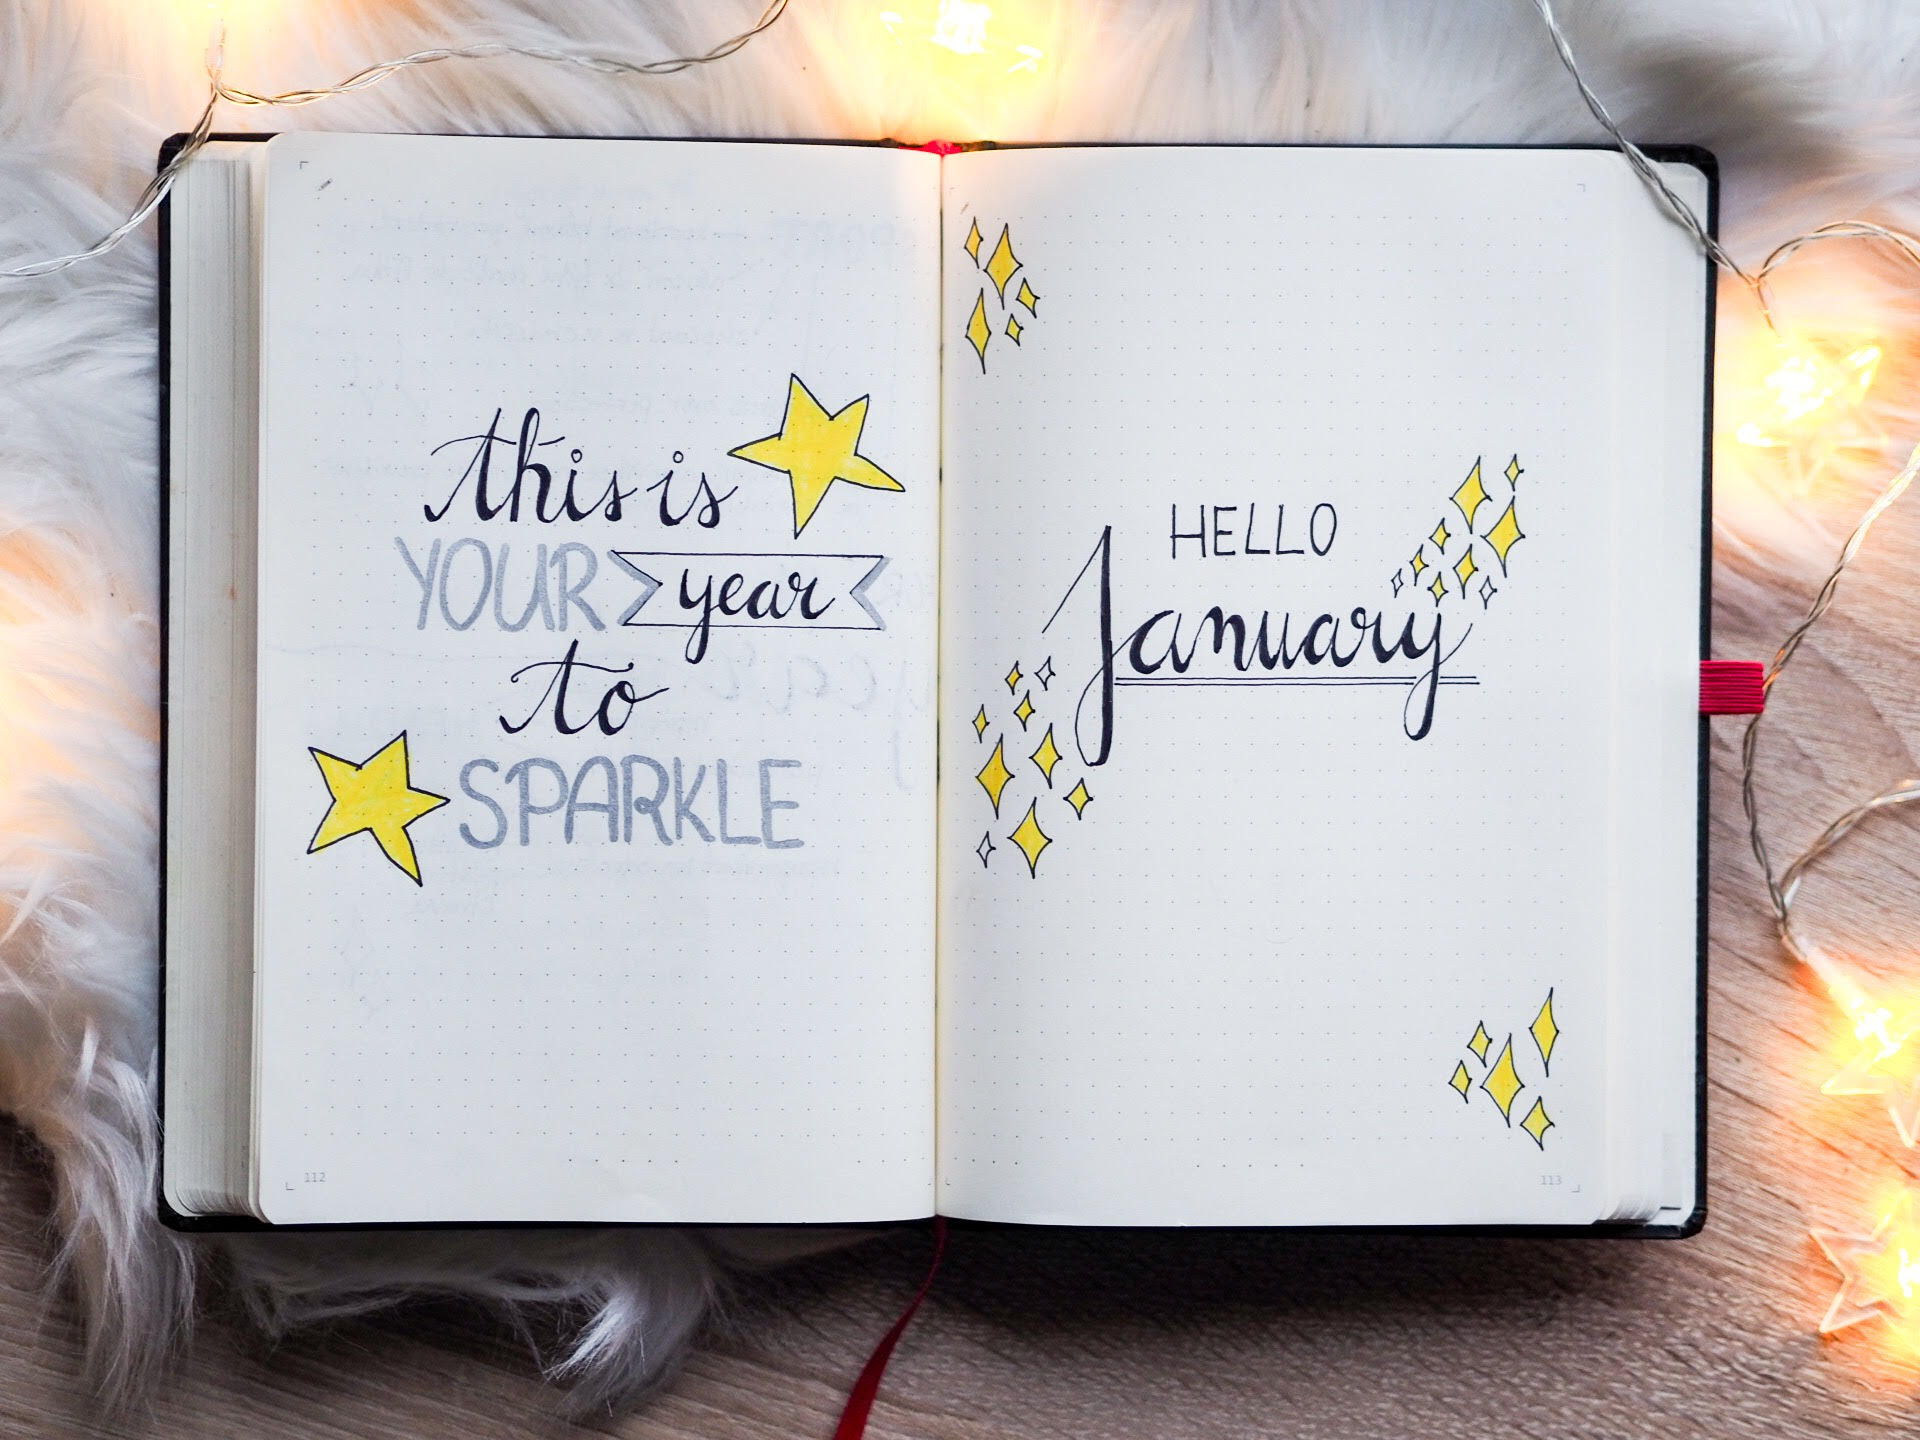 this is
YOUR year
to
SPARKLE
112
HELLO
January
113